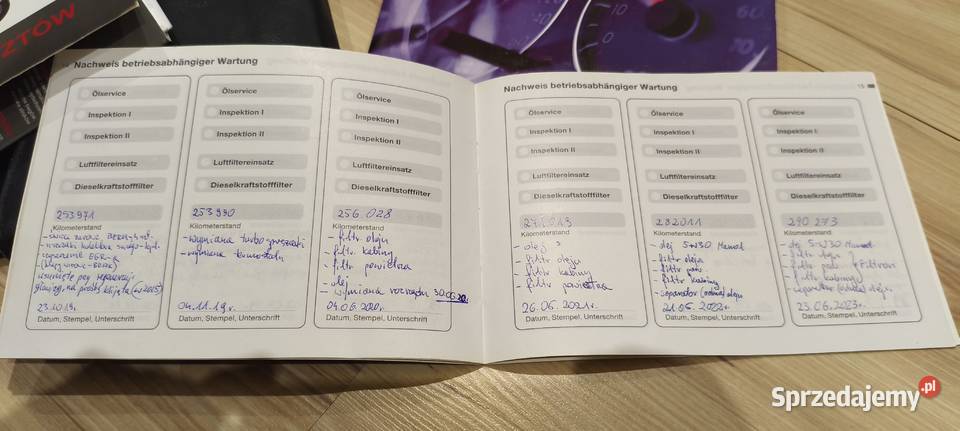 ZTÓW
Nachweis betriebsabhängiger Wartung
Ölservice
Inspektion I
Inspektion II
Luftfiltereinsatz
Dieselkraftstofffilter
253971
Kilometerstand
23.10.19r.
Datum, Stempel, Unterschrift
Ölservice
Inspektion I
Inspektion II
Luftfiltereinsatz
Dieselkraftstofffilter
253990
Kilometerstand
- wymiana turbo sprężarki
- wymiana termostatu
04.11.19r.
Datum, Stempel, Unterschrift
Ölservice
Inspektion I
Inspektion II
Luftfiltereinsatz
Dieselkraftstofffilter
256.028
Kilometerstand
- filtr oleju
- filtr kabiny
- filtr powietrza
- olej
- wymiana rozrządu
04.06.2020r.
Datum, Stempel, Unterschrift
Nachweis betriebsabhängiger Wartung
15
Ölservice
Inspektion I
Inspektion II
Luftfiltereinsatz
Dieselkraftstofffilter
Kilometerstand
- olej
- filtr oleju
- filtr kabiny
- filtr powietrza
26.06.2021r.
Datum, Stempel, Unterschrift
Ölservice
Inspektion I
Inspektion II
Luftfiltereinsatz
Dieselkraftstofffilter
282011
Kilometerstand
- olej 5W30
- filtr oleju
- filtr pow.
- filtr kabiny
- separator oleju
21.06.2022r.
Datum, Stempel, Unterschrift
Ölservice
Inspektion I
Inspektion II
Luftfiltereinsatz
Dieselkraftstofffilter
290273
Kilometerstand
- olej 5W30
- filtr oleju
- filtr pow.
- filtr kabiny
- separator oleju
23.06.2023r.
Datum, Stempel, Unterschrift
10
0
60
70
Sprzedajemy.pl